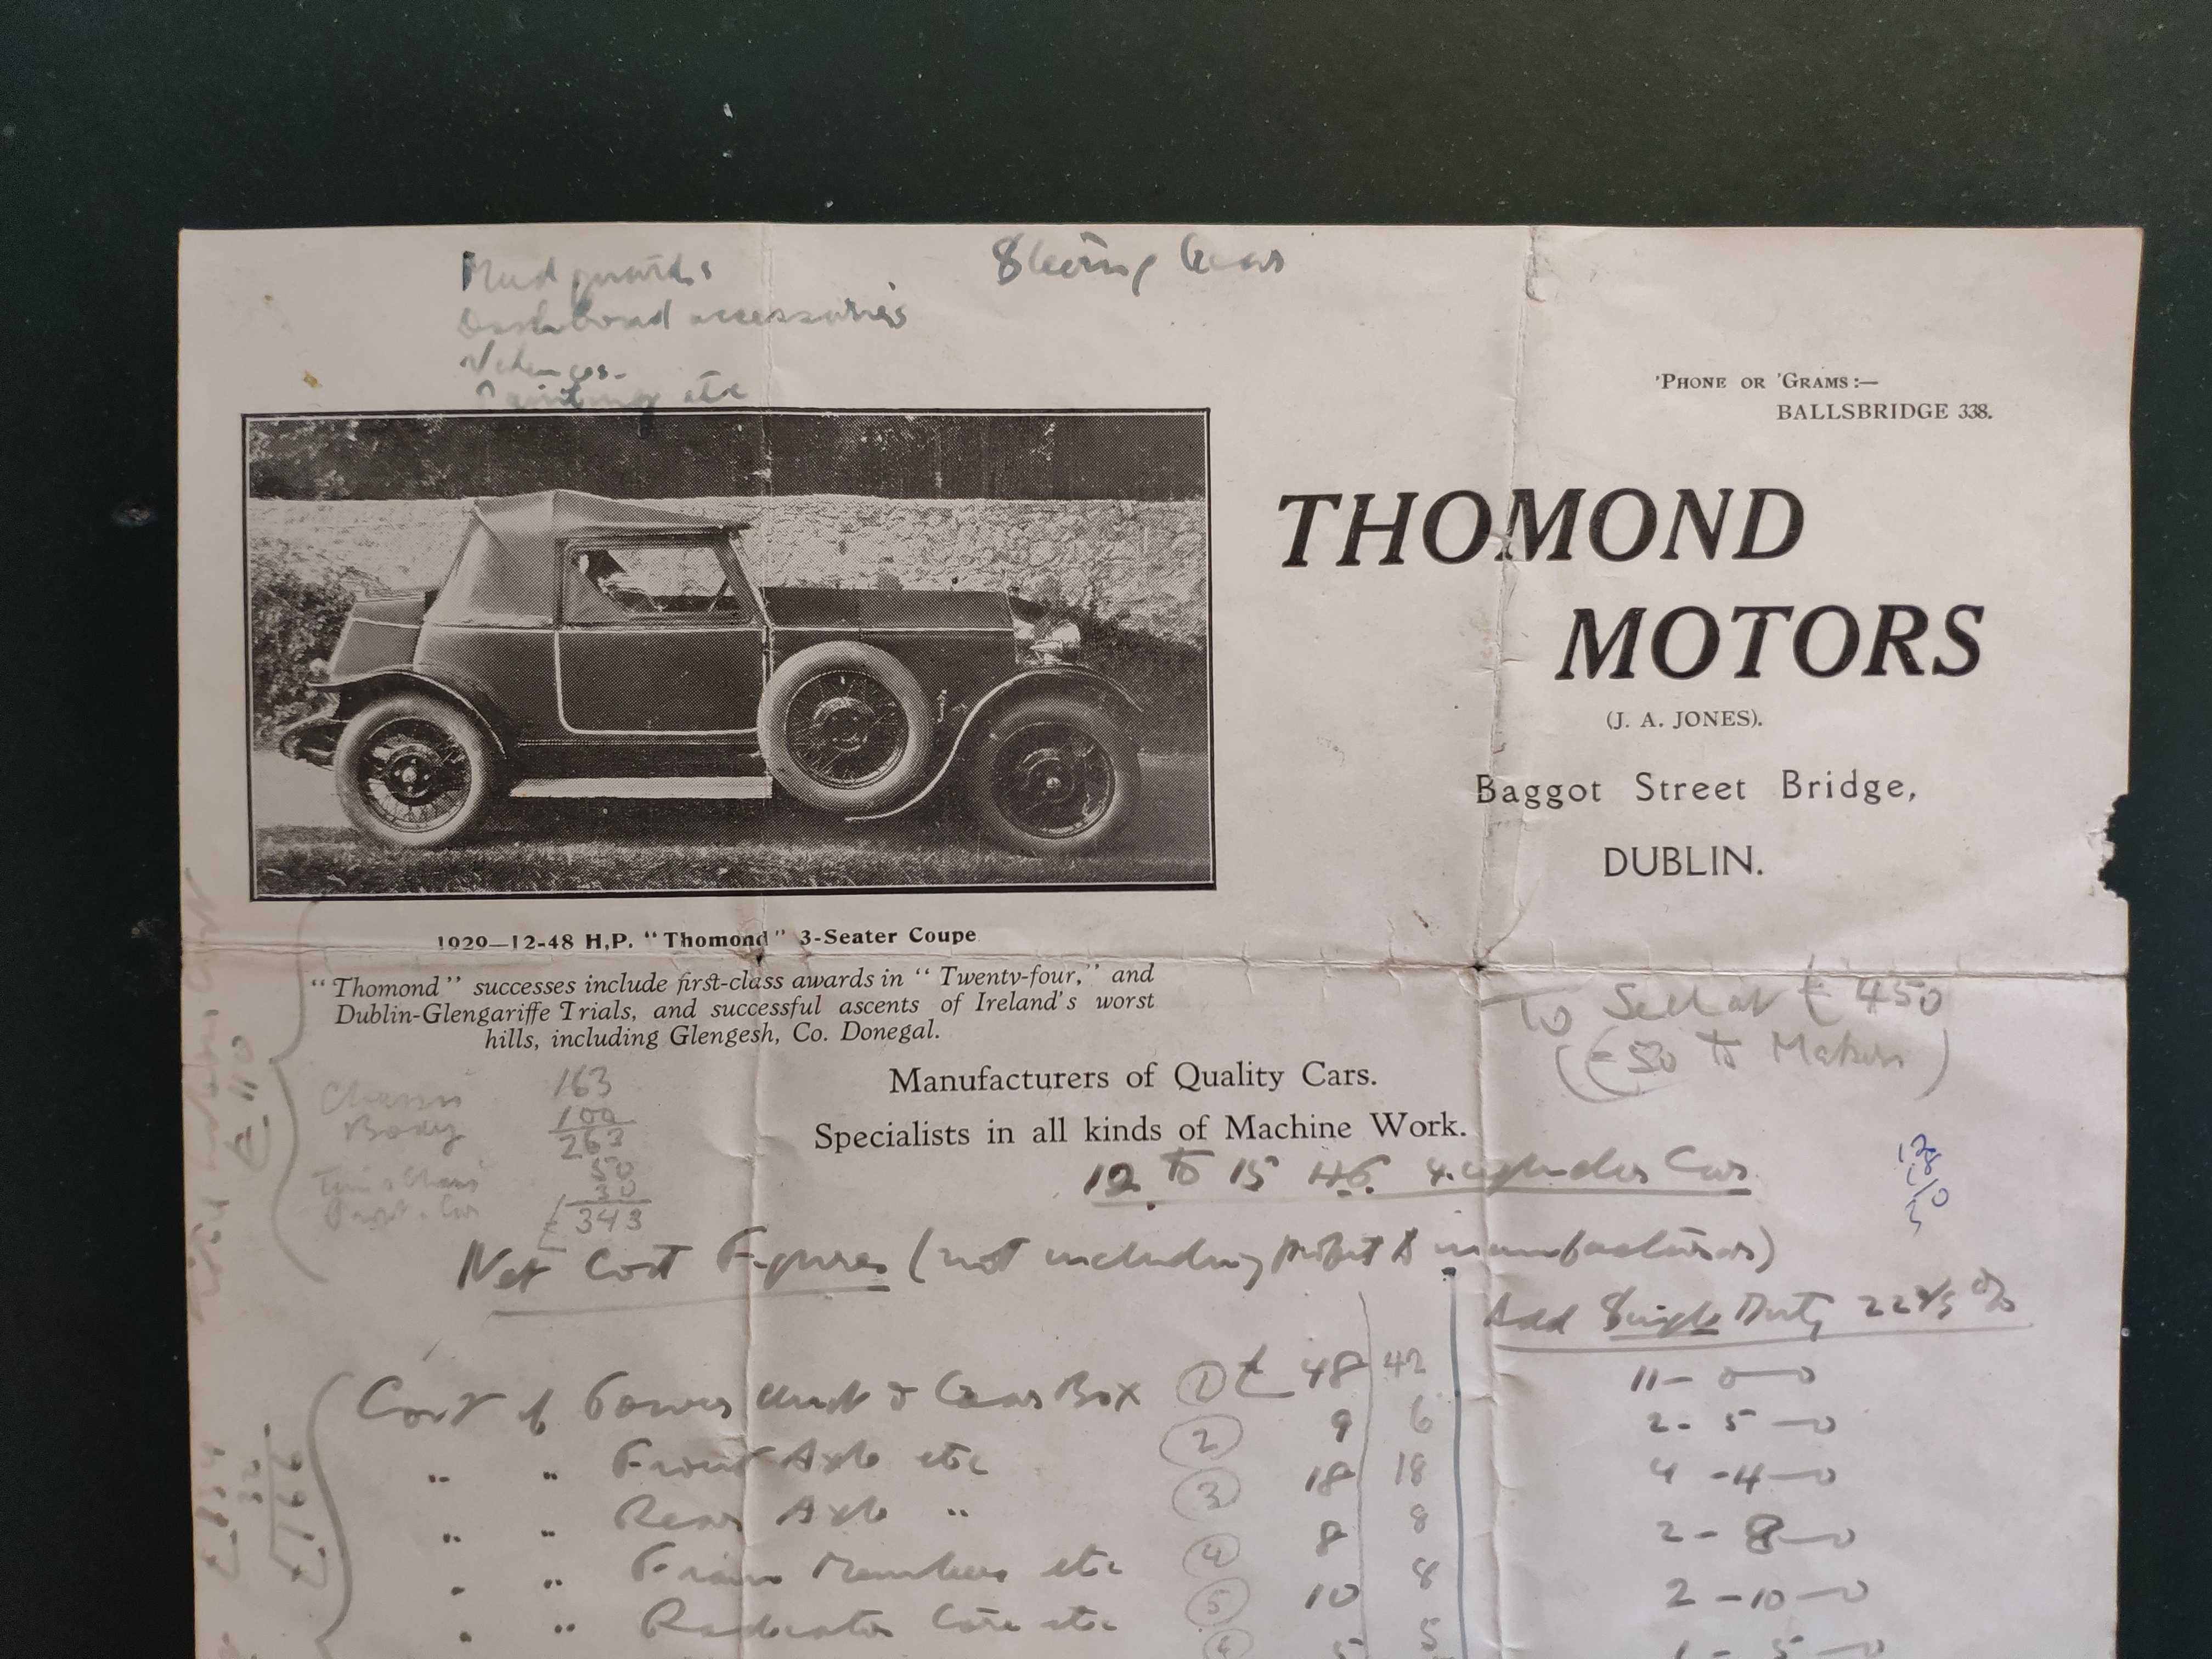 Mud guards
Dashboard accessories
Painting etc
Steering Gear
'PHONE OR 'GRAMS :—
BALLSBRIDGE 338.
THOMOND
MOTORS
(J. A. JONES).
Baggot Street Bridge,
DUBLIN.
1929—12-48 H,P. "Thomond" 3-Seater Coupe
"Thomond" successes include first-class awards in "Twenty-four," and
Dublin-Glengariffe Trials, and successful ascents of Ireland's worst
hills, including Glengesh, Co. Donegal.
To Sell at £450
(£50 to Makers)
Manufacturers of Quality Cars.
Specialists in all kinds of Machine Work.
Chassis 163
Body 100
263
50
30
£343
12 to 15 H.P. 4 cylinder Car
Net Cost Figures (not including profit to manufacturers)
Add Single Duty 22
Cost of Power Unit & Gear Box 1 £ 48 42 11-0-0
" " Front Axle etc 2 9 6 2-5-0
" " Rear Axle " 3 18 18 4-4-0
" " Frame Members etc 4 8 8 2-8-0
" " Radiator Core etc 5 10 8 2-10-0
5 5 1-5-0